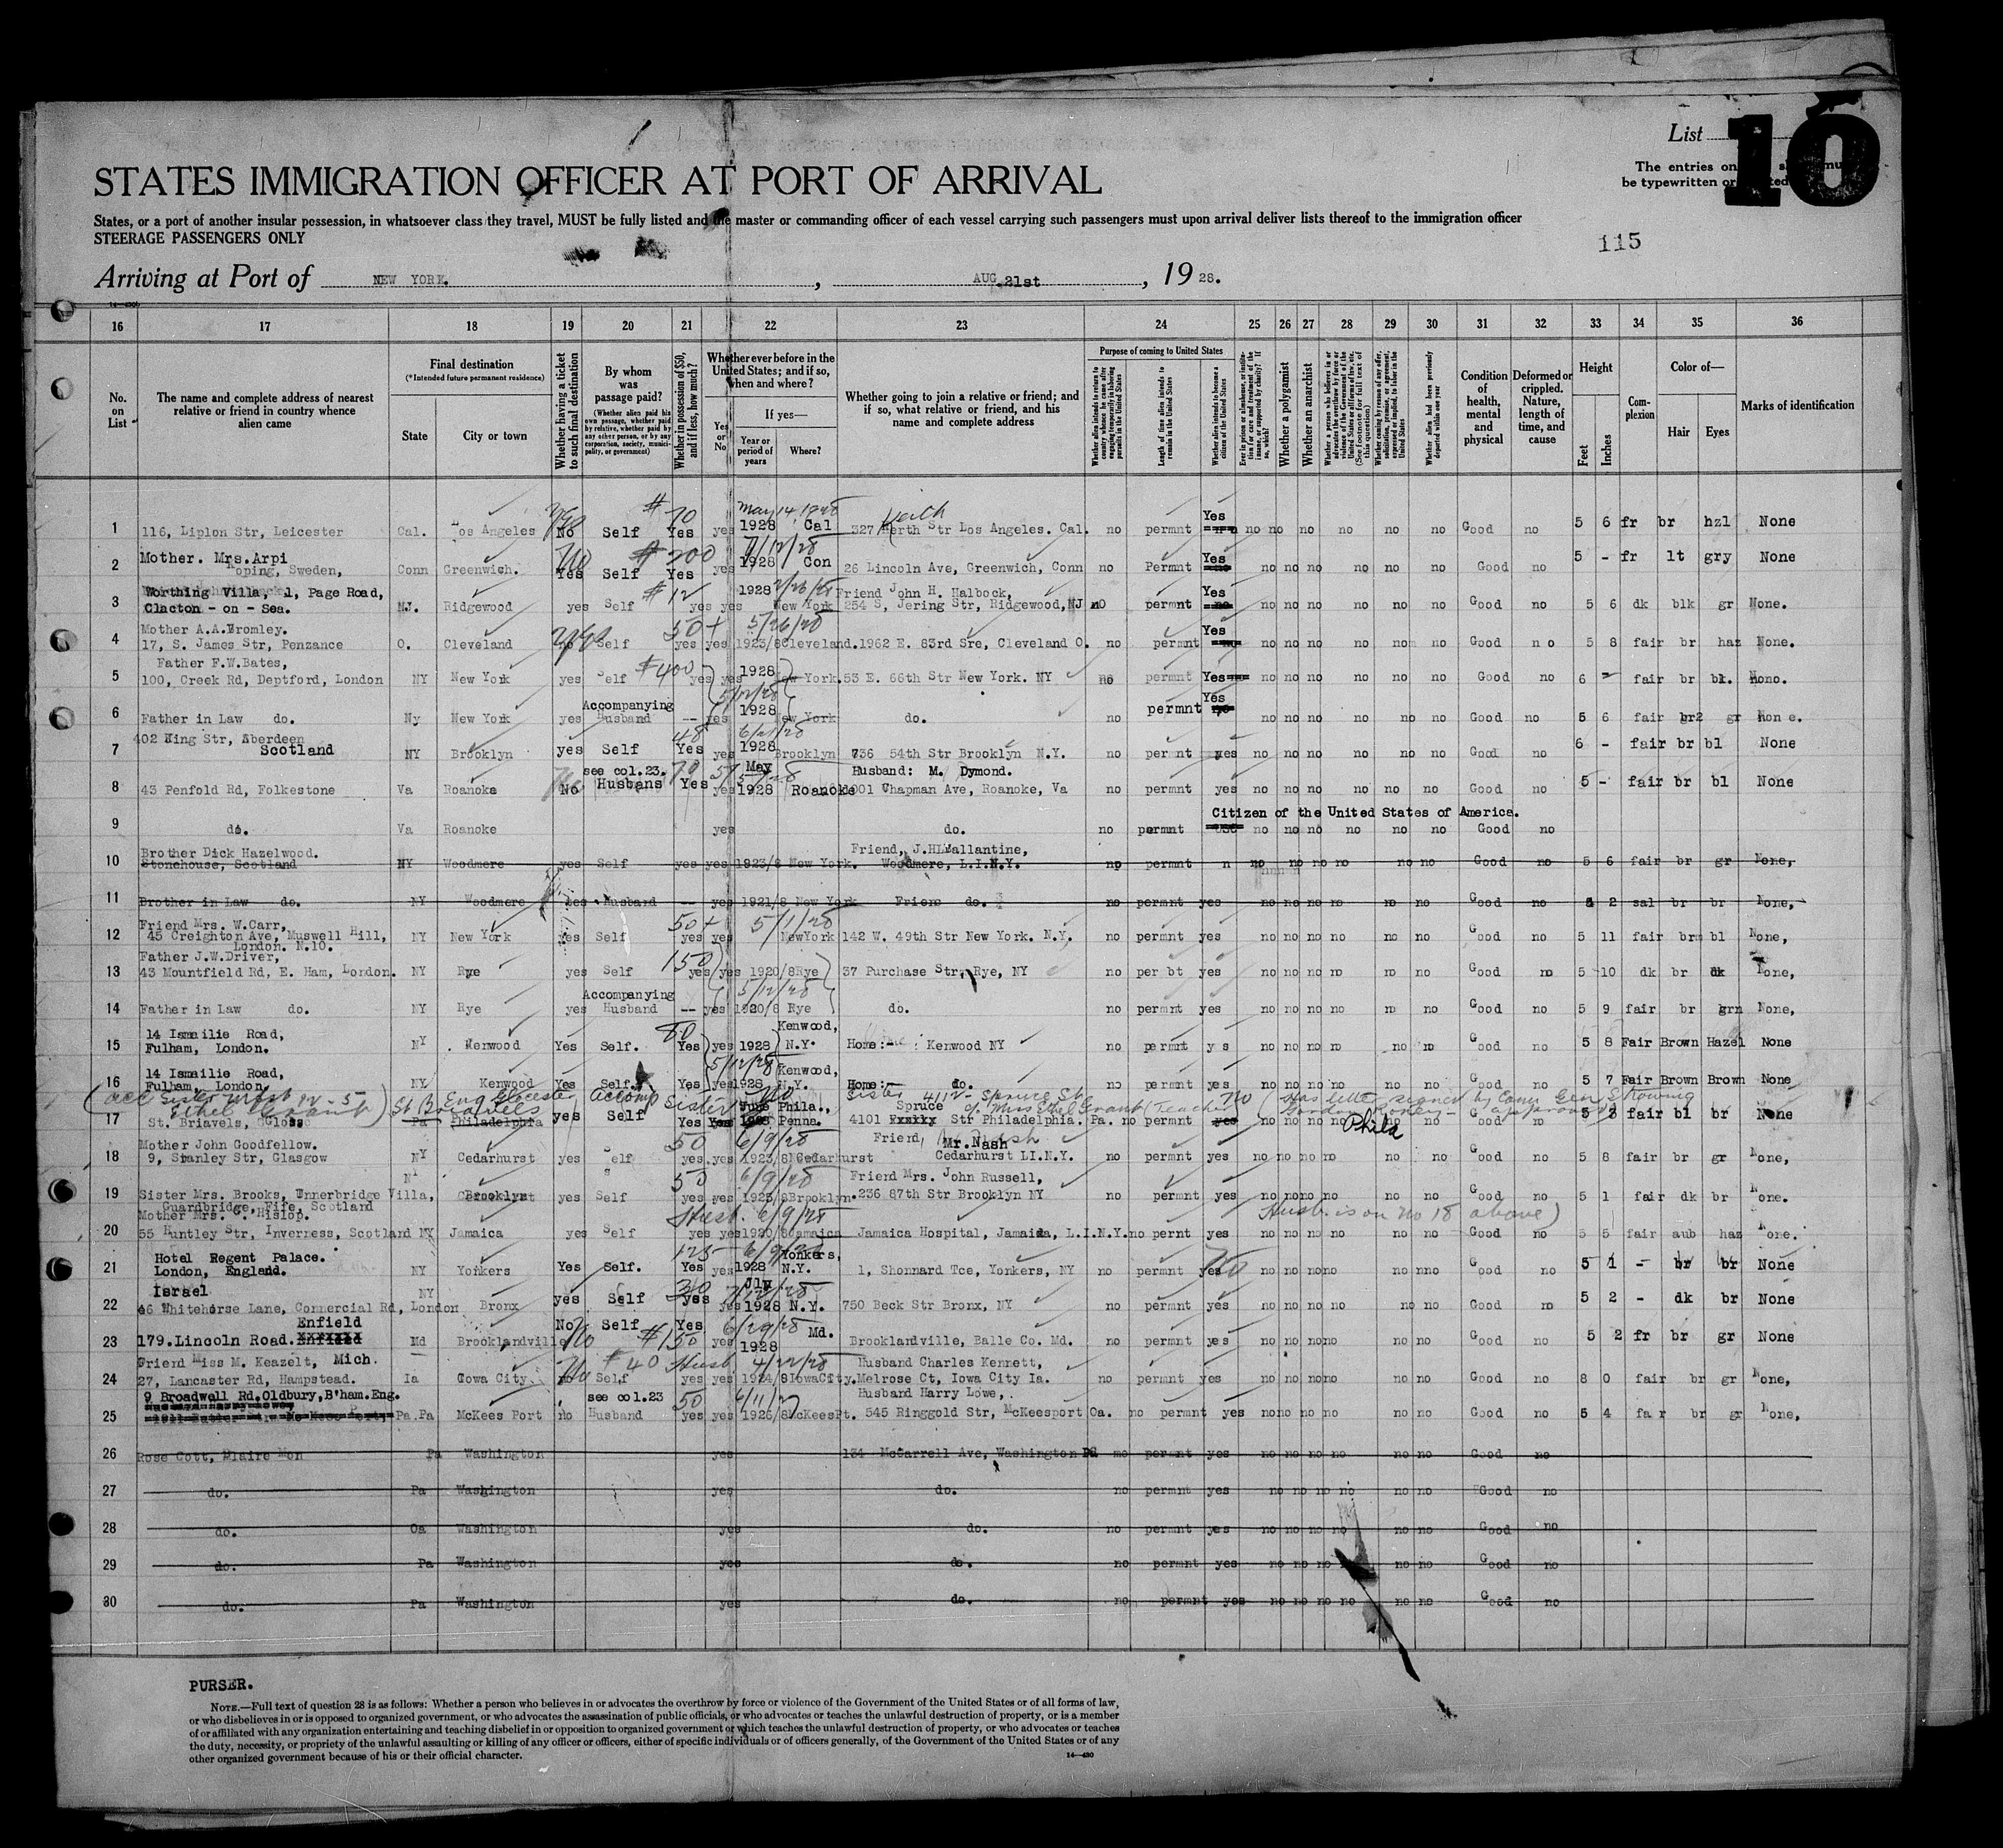 List
10
The entries on
be typewritten or
STATES IMMIGRATION OFFICER AT PORT OF ARRIVAL
States, or a port of another insular possession, in whatsoever class they travel, MUST be fully listed and the master or commanding officer of each vessel carrying such passengers must upon arrival deliver lists thereof to the immigration officer
STEERAGE PASSENGERS ONLY
115
Arriving at Port of NEW YORK. , AUG.21st , 19 28.
16 17 18 19 20 21 22 23 24 25 26 27 28 29 30 31 32 33 34 35 36
No. on List
The name and complete address of nearest relative or friend in country whence alien came
Final destination
(*Intended future permanent residence)
State
City or town
Whether having a ticket to such final destination
By whom was passage paid?
(Whether alien paid his own passage, whether paid by relative, whether paid by any other person, or by any corporation, society, municipality, or government)
Whether in possession of $50, and if less, how much?
Whether ever before in the United States; and if so, when and where?
Yes or No
If yes—
Year or period of years
Where?
Whether going to join a relative or friend; and if so, what relative or friend, and his name and complete address
Purpose of coming to United States
Length of time alien intends to remain in the United States
Whether alien intends to become a citizen of the United States
Whether a polygamist
Whether an anarchist
Condition of health, mental and physical
Deformed or crippled. Nature, length of time, and cause
Height
Feet
Inches
Complexion
Color of—
Hair
Eyes
Marks of identification
May 14 1928
1 116, Liplon Str, Leicester Cal. Los Angeles No Self $70 Yes yes 1928 Cal 327 Keith Str Los Angeles. Cal. no permnt Yes no no no no no no Good no 5 6 fr br hzl None
2 Mother. Mrs.Arpi
Koping, Sweden, Conn Greenwich. No Yes Self $200 Yes yes 7/12/28 1928 Con 26 Lincoln Ave, Greenwich, Conn no Permnt Yes no no no no no no Good no 5 - fr lt gry None
3 Worthing Villa, 1, Page Road,
Clacton - on - Sea. NJ. Ridgewood yes Self $12 yes yes 1928 New York Friend John H. Halbock,
254 S, Jering Str, Ridgewood,NJ no permnt Yes no no no no no no Good no 5 6 dk blk gr None.
Mother A.A.Bromley.
4 17, S. James Str, Penzance O. Cleveland no Self 50+ yes yes 5/26/28 1923/8 Cleveland. 1962 E. 83rd Sre, Cleveland O. no permnt Yes no no no no no no Good n o 5 8 fair br haz None.
Father F.W.Bates,
5 100, Creek Rd, Deptford, London NY New York yes Self $400 yes yes 1928 New York. 53 E. 66th Str New York. NY no permnt Yes no no no no no no Good no 6 - fair br bl. Nono.
5/12/28
6 Father in Law do. Ny New York yes Accompanying Husband -- yes 1928 New York do. no permnt Yes no no no no no no Good no 5 6 fair gr Non e.
7 402 King Str, Aberdeen
Scotland NY Brooklyn yes Self 48 Yes yes 1928 Brooklyn 736 54th Str Brooklyn N.Y. no permnt yes no no no no no no Good no 6 - fair br bl None
8 43 Penfold Rd, Folkestone Va Roanoke No see col.23. Husbans 70 Yes yes May 1928 Roanoke Husband: M. Dymond.
1001 Chapman Ave, Roanoke, Va no permnt yes no no no no no no Good no 5 - fair br bl None
9 do. Va Roanoke yes do. no permnt Citizen of the United States of America. no no no no no no Good no
10 Brother Dick Hazelwood.
Stonehouse, Scotland NY Woodmere yes Self yes yes 1923/8 New York. Friend, J.H.Vallantine,
Woodmere, L.I.N.Y. no permnt n no no no no no no Good no 5 6 fair br gr None,
11 Brother in Law do. NY Woodmere yes Husband -- yes 1921/8 New York Friend do. no permnt yes no no no no no no Good no 5 2 sal br br None,
Friend Mrs. W.Carr,
12 45 Creighton Ave, Muswell Hill,
London. N.10. NY New York yes Self 50+ yes yes 5/1/28 NewYork 142 W. 49th Str New York. N.Y. no permnt yes no no no no no no Good no 5 11 fair brn bl None,
Father J.W.Driver,
13 43 Mountfield Rd, E. Ham, London. NY Rye yes Self 150 yes yes 1920/8 Rye 37 Purchase Str, Rye, NY no per bt yes no no no no no no Good no 5 10 dk br dk None,
5/12/28
14 Father in Law do. NY Rye yes Accompanying Husband -- yes 1920/8 Rye do. no permnt yes no no no no no no Good no 5 9 fair br grn None,
15 14 Ismailie Road,
Fulham, London. NY Kenwood Yes Self. 80 Yes yes 1928 Kenwood, N.Y. Home:- Kenwood NY no permnt y s no no no no no no Good no 5 8 Fair Brown Hazel None
5/12/28
16 14 Ismailie Road,
Fulham, London. NY Kenwood Yes Self. Yes yes 1928 Kenwood, N.Y. Home: do. no permnt yes no no no no no no Good no 5 7 Fair Brown Brown None
Ethel Grant) St Briavels Accomp Sister No Sister 4112 - Spruce St c/o Miss Ethel Grant (Teacher No
17 St. Briavels, Gloss Pa Philadelphia yes Self Yes Yes June 1928 Phila., Penna. 4101 Spruce Str Philadelphia. Pa. no permnt yes no no no no no no Good no 5 3 fair bl br None
Phila
Mother John Goodfellow.
18 9, Stanley Str, Glasgow NY Cedarhurst yes Self 50 yes yes 6/9/28 1923/8 Cedarhurst Friend, Mr. Nash
Cedarhurst LI.N.Y. no permnt yes no no no no no no Good no 5 8 fair br gr None,
19 Sister Mrs. Brooks, Innerbridge Villa,
Guardbridge, Fife, Scotland NY Brooklyn yes Self 50 yes yes 6/9/28 1923/8 Brooklyn. Friend Mrs. John Russell,
236 87th Str Brooklyn NY no permnt yes no no no no no no Good no 5 1 fair dk br None.
Mother Mrs. C. Hislop. Husb. 6/9/28 Husb. is on no 18 above)
20 55 Huntley Str, Inverness, Scotland NY Jamaica yes Self yes yes 1920/8 Jamaica Jamaica Hospital, Jamaida, L.I.N.Y. no pernt yes no no no no no no Good no 5 5 fair aub haz None.
21 Hotel Regent Palace.
London, England. NY Yonkers Yes Self. 125 Yes yes 1928 Yonkers, N.Y. 1, Shonnard Tce, Yonkers, NY no permnt yes No no no no no no nno Good no 5 1 - br br None
22 Israel
46 Whitehorse Lane, Commercial Rd, London NY Bronx yes Self 30 yes yes Jly 1928 N.Y. 750 Beck Str Bronx, NY no permnt yes no no no no no no Good no 5 2 - dk br None
Enfield
23 179.Lincoln Road. XXXXXXX Md Brooklandville No Self $150 Yes yes 6/29/28 1928 Md. Brooklandville, Balle Co. Md. no permnt yes no no no no no no Good no 5 2 fr br gr None
Friend Miss M. Keazelt, Mich.
24 27, Lancaster Rd, Hampstead. Ia Gowa City no No Self $40 Husb yes yes 4/22/28 1924/8 IowaCity. Husband Charles Kennett,
Melrose Ct, Iowa City Ia. no permnt yes no no no no no no Good no 8 0 fair br gr None,
9 Broadwell Rd.Oldbury,B'ham.Eng.
25 Pa.Pa McKees Port no see col.23 Husband 50 yes yes 1926/8 McKeesPt. Husband Harry Lowe,
545 Ringgold Str, McKeesport Oa. no permnt yes no no no no no no Good no 5 4 fa r br gr None,
26 Rose Cott, Blaire Mon Pa Washington yes 134 McCarrell Ave, Washington no permnt yes no no no no no no Good no
27 do. Pa Washington yes do. no permnt yes no no no no no no Good no
28 do. Oa Washington yes do. no permnt yes no no no no no no Good no
29 do. Pa Washington yes do. no permnt yes no no no no no no Good no
30 do. Pa Washington yes do. no permnt yes no no no no no no Good no
PURSER.
NOTE.—Full text of question 28 is as follows: Whether a person who believes in or advocates the overthrow by force or violence of the Government of the United States or of all forms of law,
or who disbelieves in or is opposed to organized government, or who advocates the assassination of public officials, or who advocates or teaches the unlawful destruction of property, or is a member
of or affiliated with any organization entertaining and teaching disbelief in or opposition to organized government or which teaches the unlawful destruction of property, or who advocates or teaches
the duty, necessity, or propriety of the unlawful assaulting or killing of any officer or officers, either of specific individuals or of officers generally, of the Government of the United States or of any
other organized government because of his or their official character.
14—430